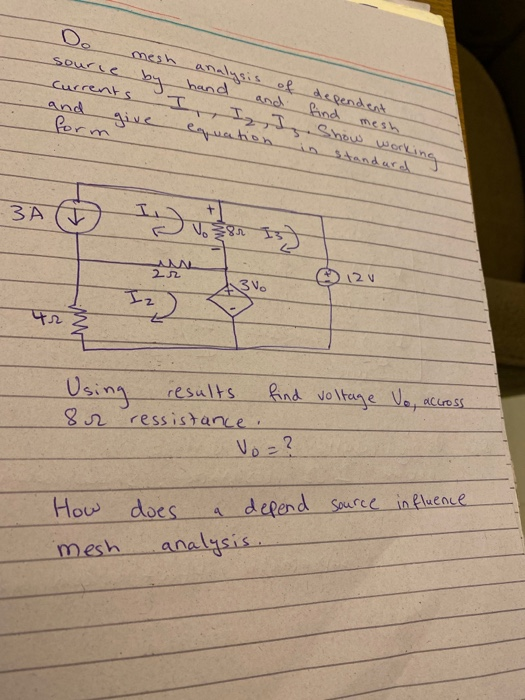 Do mesh analysis of dependent
source by hand and find mesh
currents I1, I2, I3. Show working
and give equation in standard
form
3A
I1
+
V0
8Ω
I3
-
2Ω
12V
I2
+
3V0
-
4Ω
Using results find voltage V0, accross
8Ω ressistance.
V0 = ?
How does a depend source influence
mesh analysis.